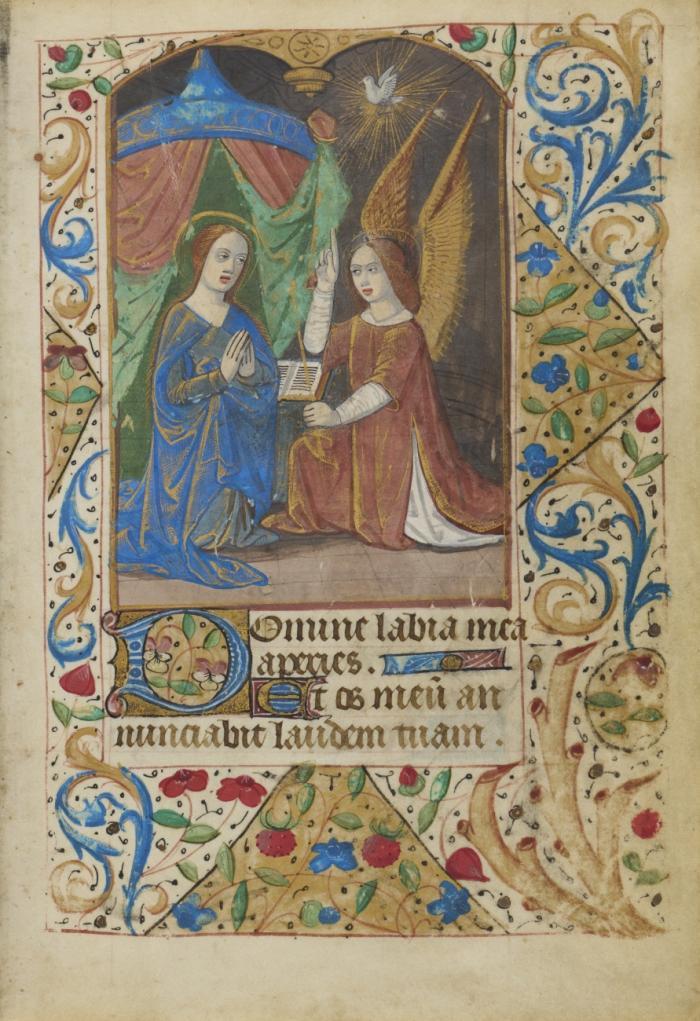 Domine labia mea
aperies.
Et os meū an
nunciabit laudem tuam.